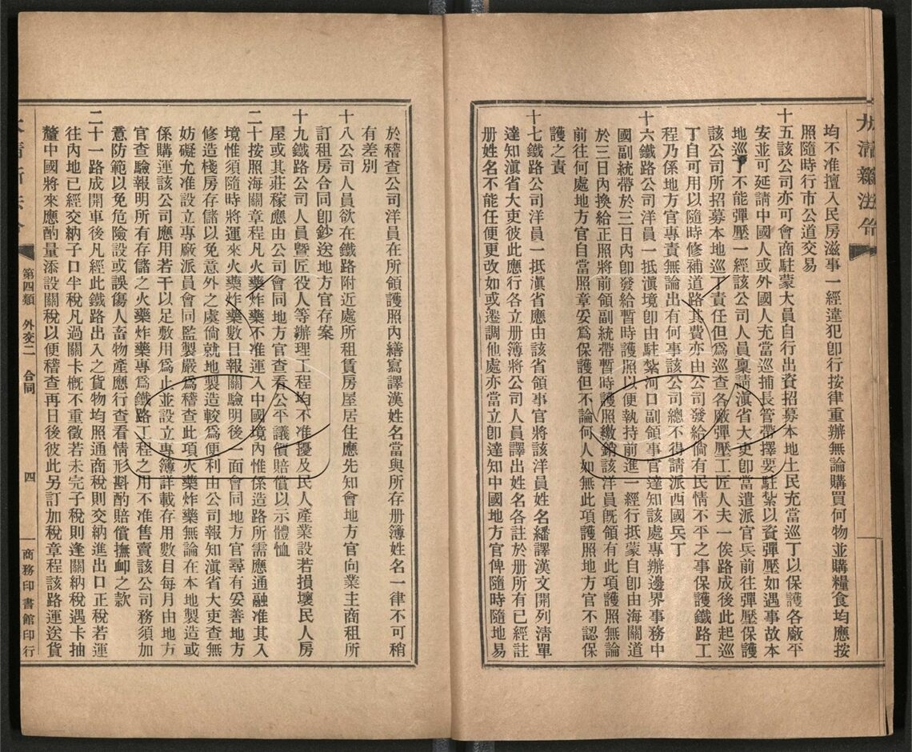 大清新法令
均不准擅入民房滋事一經違犯卽行按律重辦無論購買何物並購糧食均應按
照隨時行市公道交易
十五該公司亦可會商駐蒙大員自行出資招募本地土民充當巡丁以保護各廠平
安並可延請中國人或外國人充當巡捕長管帶擇要駐紮以資彈壓如遇事故本
地巡丁不能彈壓一經該公司人員稟請滇省大吏卽當遣派官兵前往彈壓保護
該公司所招募本地巡丁責任但爲巡查各廠彈壓工匠人夫一俟路成後此起巡
丁自可用以隨時修補道路其費亦由公司發給倘有民情不平之事保護鐵路工
程乃係地方官專責無論出有何事該公司總不得請派西國兵丁
十六鐵路公司洋員一抵滇境卽由駐紮河口副領事官達知該處專辦邊界事務中
國副統帶於三日內卽發給暫時護照以便執持前進一經行抵蒙自卽由海關道
於三日內換給正照將前領副統帶暫時護照繳銷該洋員旣領有此項護照無論
前往何處地方官自當照章妥爲保護但不論何人如無此項護照地方官不認保
護之責
十七鐵路公司洋員一抵滇省應由該省領事官將該洋員姓名繙譯漢文開列清單
達知滇省大吏彼此應行各立册簿將公司人員譯出姓名各註於册所有已經註
册姓名不能任便更改如或港調他處亦當立卽達知中國地方官俾隨時隨地易
於稽查公司洋員在所領護照內繕寫譯漢姓名當與所存册簿姓名一律不可稍
有差別
十八公司人員欲在鐵路附近處所租賃房屋居住應先知會地方官向業主商租所
訂租房合同卽鈔送地方官存案
十九鐵路公司人員曁匠役人等辦理工程均不准擾及民人產業設若損壞民人房
屋或其莊稼應由公司會同地方官查看公平議價賠償以示體恤
二十按照海關章程凡火藥炸藥不准運入中國境內惟係造路所需應通融准其入
境惟須隨時將運來火藥炸藥數目報關驗明後一面會同地方官尋有妥善地方
修造棧房存儲以免意外之虞倘就地製造較爲便利由公司報知滇省大吏查無
妨礙允准設立專廠派員會同監製嚴爲稽查此項火藥炸藥無論在本地製造或
係購運該公司應用若干以足敷用爲止並設立專簿詳載存用數目每月由地方
官查驗報明所有存儲之火藥炸藥專爲鐵路工程之用不准售賣該公司務須加
意防範以免危險設或誤傷人畜物產應行查看情形斟酌賠償撫卹之款
二十一路成開車後凡經此鐵路出入之貨物均照通商稅則交納進出口正稅若運
往內地已經交納子口半稅凡過關卡槪不重徵若未完子稅則逢關納稅遇卡抽
釐中國將來應酌量添設關稅以便稽查再日後彼此另訂加稅章程該路運送貨
大清新法令
第四類 外交二 合同
四
商務印書館印行